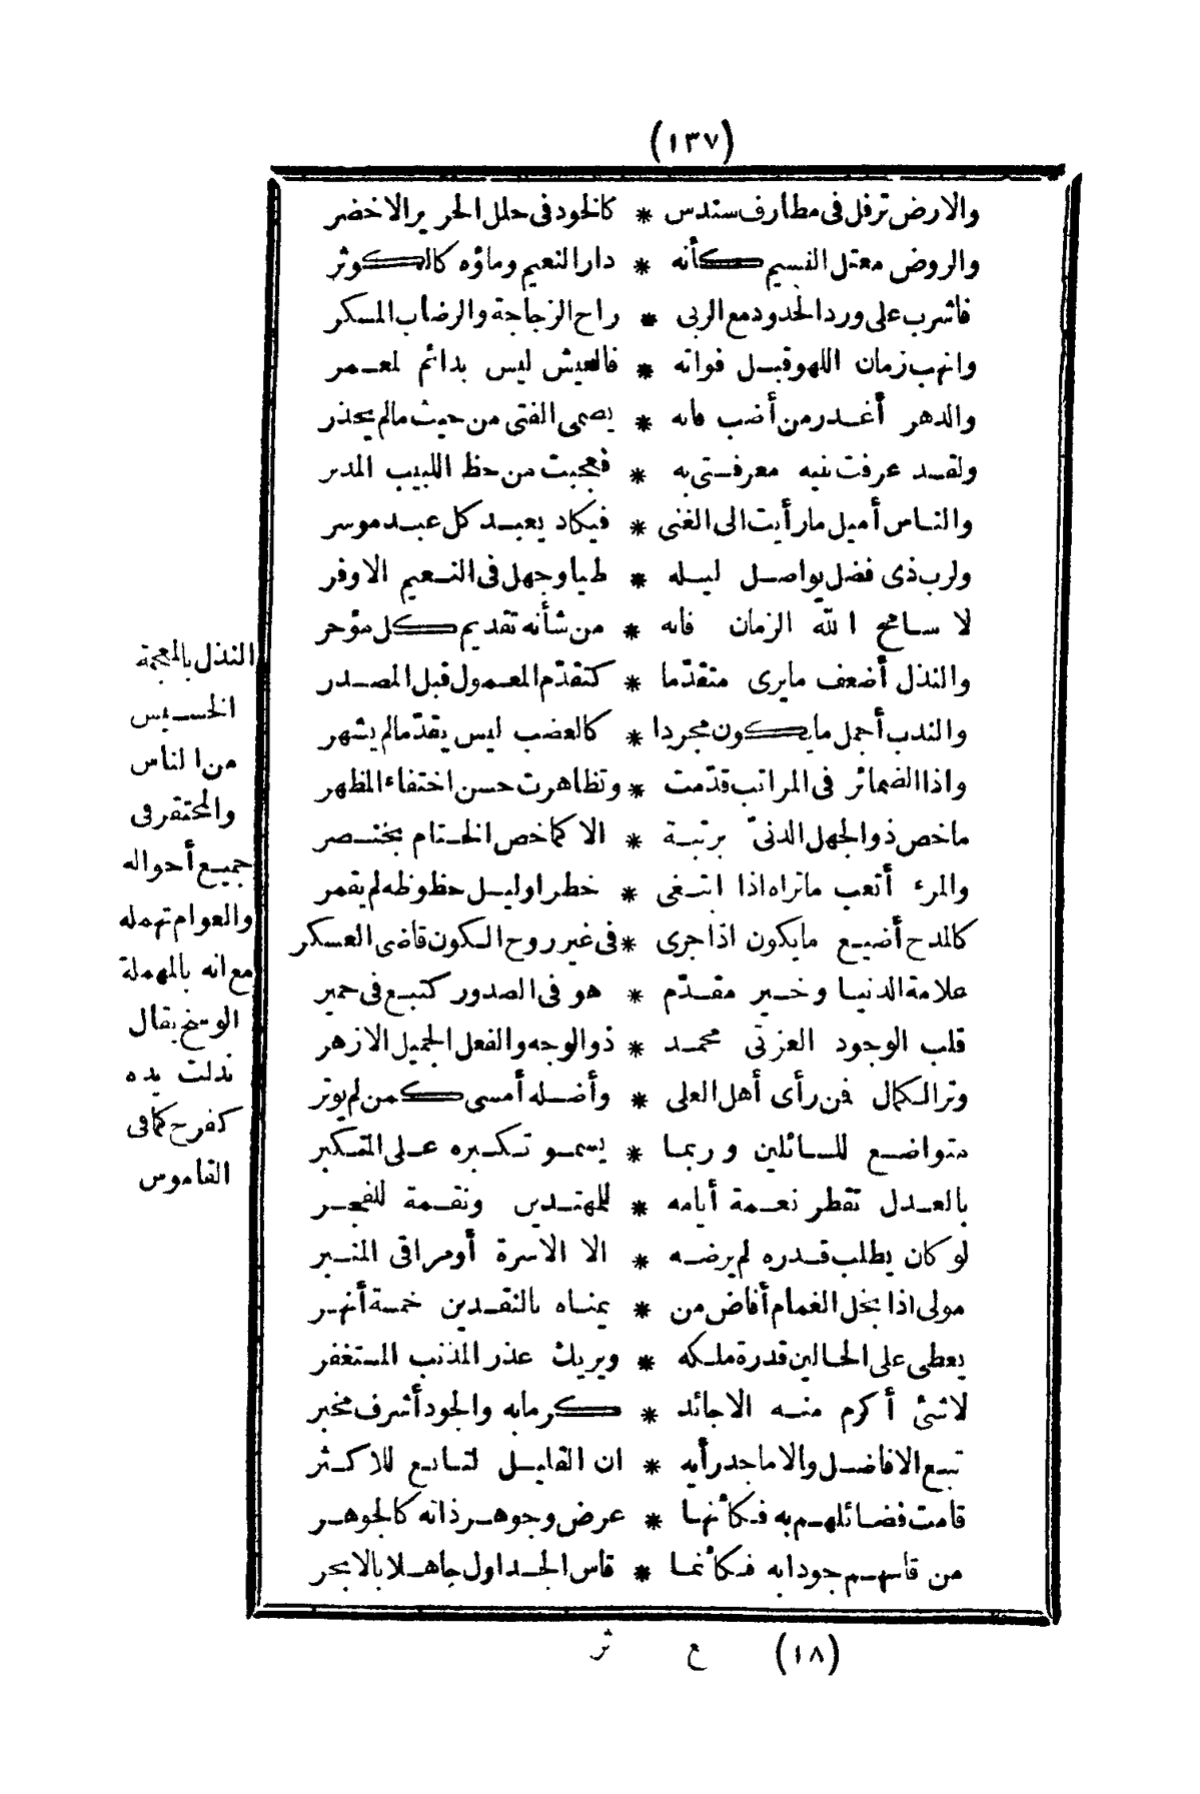 (١٣٧)
والارض ترفل فى مطارف سندس * كالخود فى حلل الحرير الاخضر
والروض معتل النسيم كأنه * دار النعيم وماؤه كالكوثر
فاشرب على ورد الخدود مع الربى * راح الزجاجة والرضاب المسكر
وانهب زمان اللهو قبل فواته * فالعيش ليس بدائم لمعمر
والدهر أغدر من أضب فانه * يصمى الفتى من حيث مالم يحذر
ولقد عرفت بنيه معرفتى به * فعجبت من حظ اللبيب المدبر
والناس أميل ما رأيت الى الغنى * فيكاد يعبد كل عبد موسر
ولرب ذى فضل يواصل ليله * طيا وجهل فى النعيم الاوفر
لا سامح الله الزمان فانه * من شأنه تقديم كل مؤخر
والنذل أضعف ما يرى متقدّما * كتقدّم المعمول قبل المصدر
والندب أجمل ما يكون مجردا * كالعضب ليس يقدّ مالم يشهر
واذا الضمائر فى المراتب قدّمت * وتظاهرت حسن اختفاء المظهر
ما خص ذو الجهل الدنىّ برتبة * الا كما خص الختام بخنصر
والمرء أتعب ما تراه اذا ابتغى * خطرا وليل حظوظه لم يقمر
كالمدح أضيع ما يكون اذا جرى * فى غير روح الكون قاضى العسكر
علامة الدنيا وخير مقدّم * هو فى الصدور كتبع فى حمير
قلب الوجود العزتى محمد * ذو الوجه والفعل الجميل الازهر
وتر الكمال فمن رأى أهل العلى * وأضله أمسى كمن لم يوتر
متواضع للسائلين وربما * يسمو تكبره على المتكبر
بالعدل تقطر نعمة أيامه * للمهتدين ونقمة للفجر
لو كان يطلب قدره لم يرضه * الا الاسرة أو مراقى المنبر
مولى اذا بخل الغمام أفاض من * يمناه بالنقدين خمسة أنهر
يعطى على الحالين قدرة ملكه * ويريك عذر المذنب المستغفر
لا شئ أكرم منه الا جائد * كرما به والجود أشرف مخبر
تبع الافاضل والاماجد رأيه * ان القليل لتابع للاكثر
قامت فضائلهم به فكأنها * عرض وجوهر ذاته كالجوهر
من قاسهم جودا به فكأنما * قاس الجداول جاهلا بالابحر
النذل بالمعجمة
الخسيس
من الناس
والمحتقر فى
جميع أحواله
والعوام تهمله
مع انه بالمهملة
الوسخ يقال
ندلت يده
كفرح كما فى
القاموس
(١٨) ع ثر